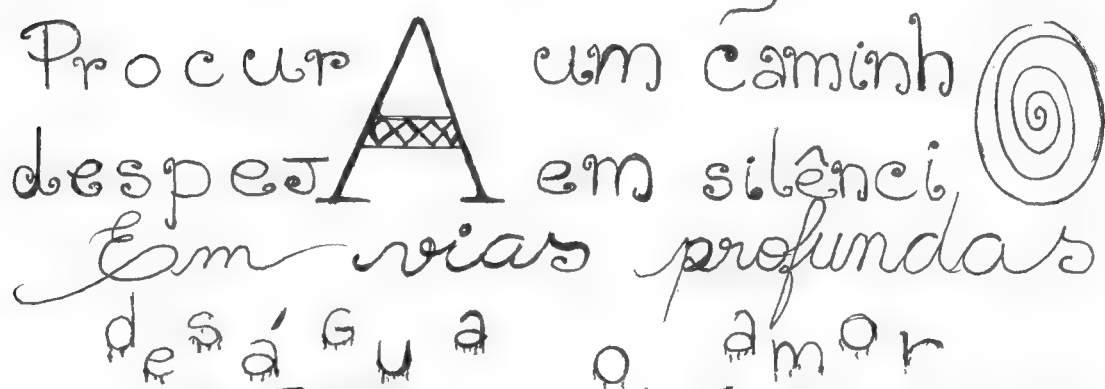 ProcurA um caminhO
despejA em silênciO
Em vias profundas
deságua o amor